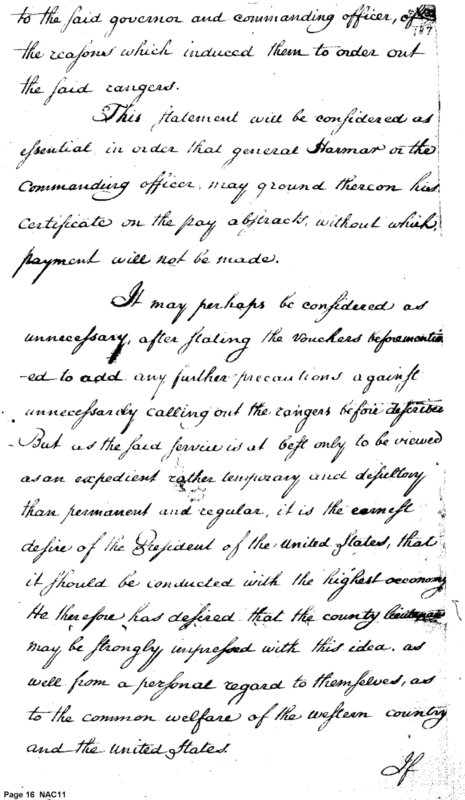 to the said governor and commanding officer, of
187
the reasons which induced them to order out
the said rangers.
This statement will be considered as
essential in order that general Harmar or the
commanding officer may ground thereon his
certificate on the pay abstracts, without which,
payment will not be made.
It may perhaps be considered as
unnecessary, after stating the vouchers beforemention
-ed to add any further precautions against
unnecessarily calling out the rangers before described
But as the said service is at best only to be viewed
as an expedient rather temporary and desultory
than permanent and regular, it is the earnest
desire of the President of the United States, that
it should be conducted with the highest oeconomy
He therefore has desired that the county lieutenants
may be strongly impressed with this idea, as
well from a personal regard to themselves, as
to the common welfare of the western country
and the United States.
If
Page 16 NAC11